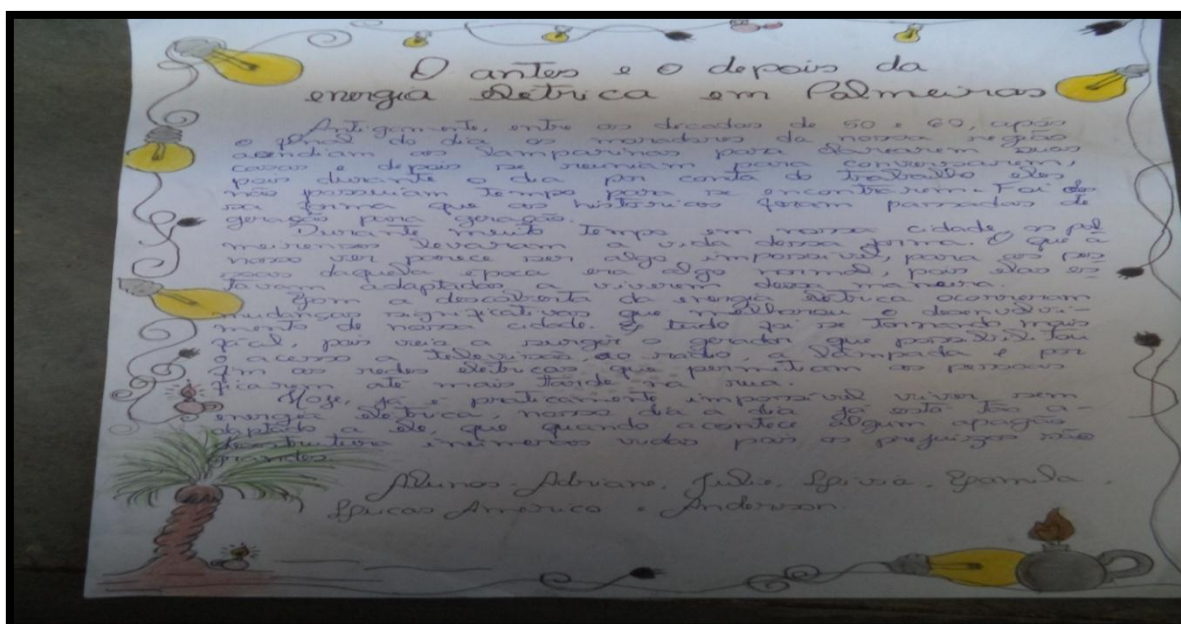 O antes e o depois da
energia elétrica em Palmeiras
Antigamente, entre as décadas de 50 e 60, após
o final do dia os moradores da nossa região
acendiam as lamparinas para clarearem suas
casas e depois se reuniam para conversarem,
pois durante o dia por conta do trabalho eles
não possuiam tempo para se encontrarem. Foi des
sa forma que as histórias foram passadas de
geração para geração.
Durante muito tempo em nossa cidade, os pal
meirenses levaram a vida dessa forma. O que a
nosso ver parece ser algo impossível, para as pes
soas daquela época era algo normal, pois elas es
tavam adaptadas a viverem dessa maneira.
Com a descoberta da energia elétrica ocorreram
mudanças significativas que melhorou o desenvolvi-
mento de nossa cidade. E tudo foi se tornando mais
fácil, pois veio a surgir o gerador que possibilitou
o acesso a televisão, ao rádio, a lâmpada e por
fim as redes elétricas que permitiam as pessoas
ficarem até mais tarde na rua.
Hoje, já é praticamente impossível viver sem
energia elétrica, nosso dia a dia já está tão a-
daptado a ela, que quando acontece algum apagão
inúmeras vidas pois os prejuízos são
grandes.
Alunos - Adriane, Julie, Lívia, Camila,
Lucas Américo e Anderson.